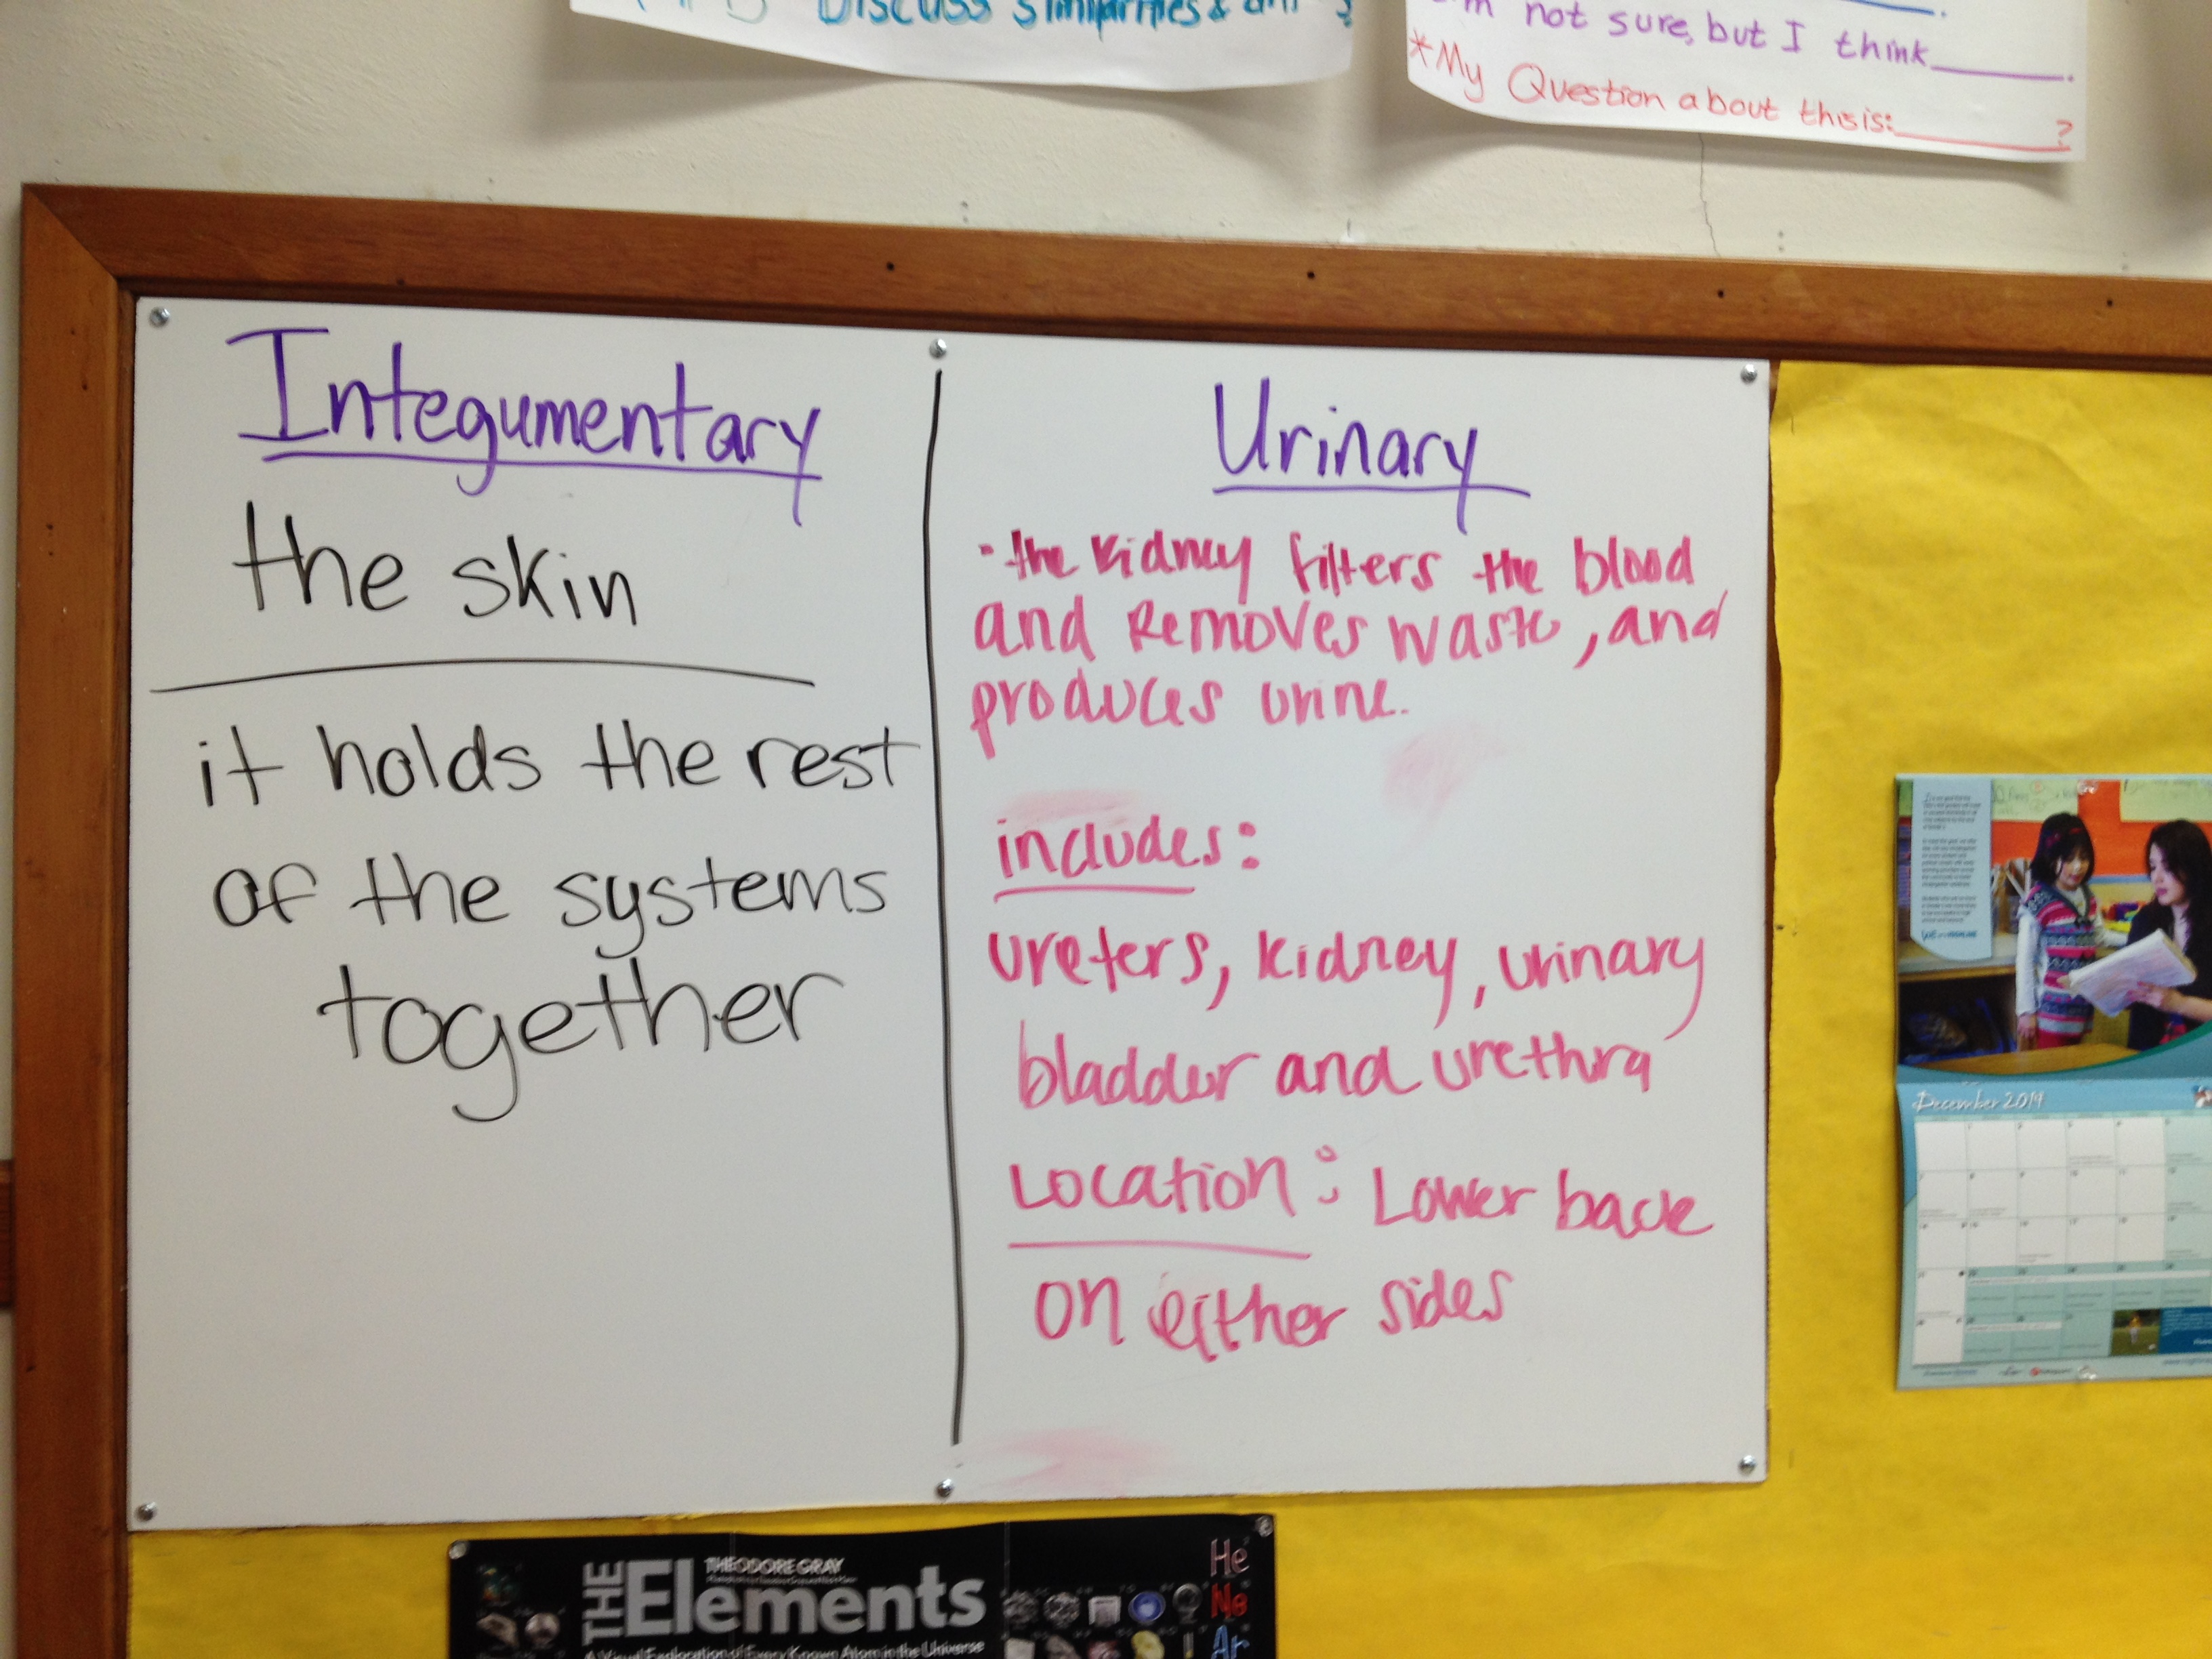 Discuss similarities &
not sure, but I think______.
*My Question about this is:______?
Integumentary
the skin
it holds the rest
of the systems
together
Urinary
· the kidney filters the blood
and Removes waste, and
produces urine.
includes:
ureters, kidney, urinary
bladder and urethra
Location: Lower back
on either sides
December 2014
THE Elements
THEODORE GRAY
A Visual Exploration of Every Known Atom in the Universe
He
Ne
Ar